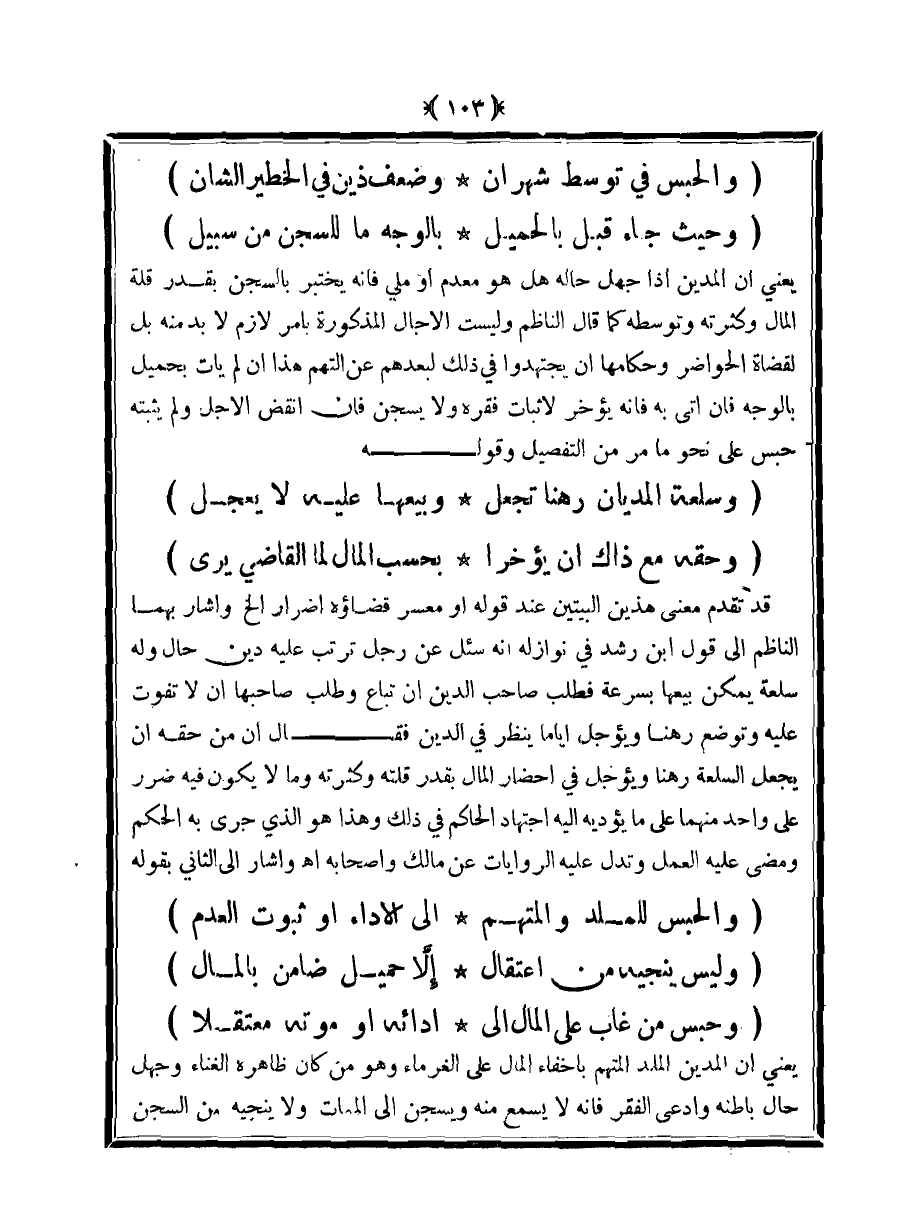 ﴿ ١٠٣ ﴾
( والحبس في توسط شهران * وضعف ذين في الخطير الشان )
( وحيث جاء قبل بالحميل * بالوجه ما للسجن من سبيل )
يعني ان المدين اذا جهل حاله هل هو معدم او ملي فانه يختبر بالسجن بقدر قلة
المال وكثرته وتوسطه كما قال الناظم وليست الاجال المذكورة بامر لازم لا بد منه بل
لقضاة الحواضر وحكامها ان يجتهدوا في ذلك لبعدهم عن التهم هذا ان لم يات بحميل
بالوجه فان اتى به فانه يؤخر لاثبات فقره ولا يسجن فان انقض الاجل ولم يثبته
حبس على نحو ما مر من التفصيل وقوله
( وسلعة المديان رهنا تجعل * وبيعها عليه لا يعجل )
( وحقه مع ذاك ان يؤخرا * بحسب المال لما القاضي يرى )
قد تقدم معنى هذين البيتين عند قوله او معسر قضاؤه اضرار الخ واشار بهما
الناظم الى قول ابن رشد في نوازله انه سئل عن رجل ترتب عليه دين حال وله
سلعة يمكن بيعها بسرعة فطلب صاحب الدين ان تباع وطلب صاحبها ان لا تفوت
عليه وتوضع رهنا ويؤجل اياما ينظر في الدين فقال ان من حقه ان
يجعل السلعة رهنا ويؤجل في احضار المال بقدر قلته وكثرته وما لا يكون فيه ضرر
على واحد منهما على ما يؤديه اليه اجتهاد الحاكم في ذلك وهذا هو الذي جرى به الحكم
ومضى عليه العمل وتدل عليه الروايات عن مالك واصحابه اه واشار الى الثاني بقوله
( والحبس للملد والمتهم * الى الاداء او ثبوت العدم )
( وليس ينجيه من اعتقال * إلّا حميل ضامن بالمال )
( وحبس من غاب على المال الى * ادائه او موته معتقلا )
يعني ان المدين الملد المتهم باخفاء المال على الغرماء وهو من كان ظاهره الغناء وجهل
حال باطنه وادعى الفقر فانه لا يسمع منه ويسجن الى الممات ولا ينجيه من السجن